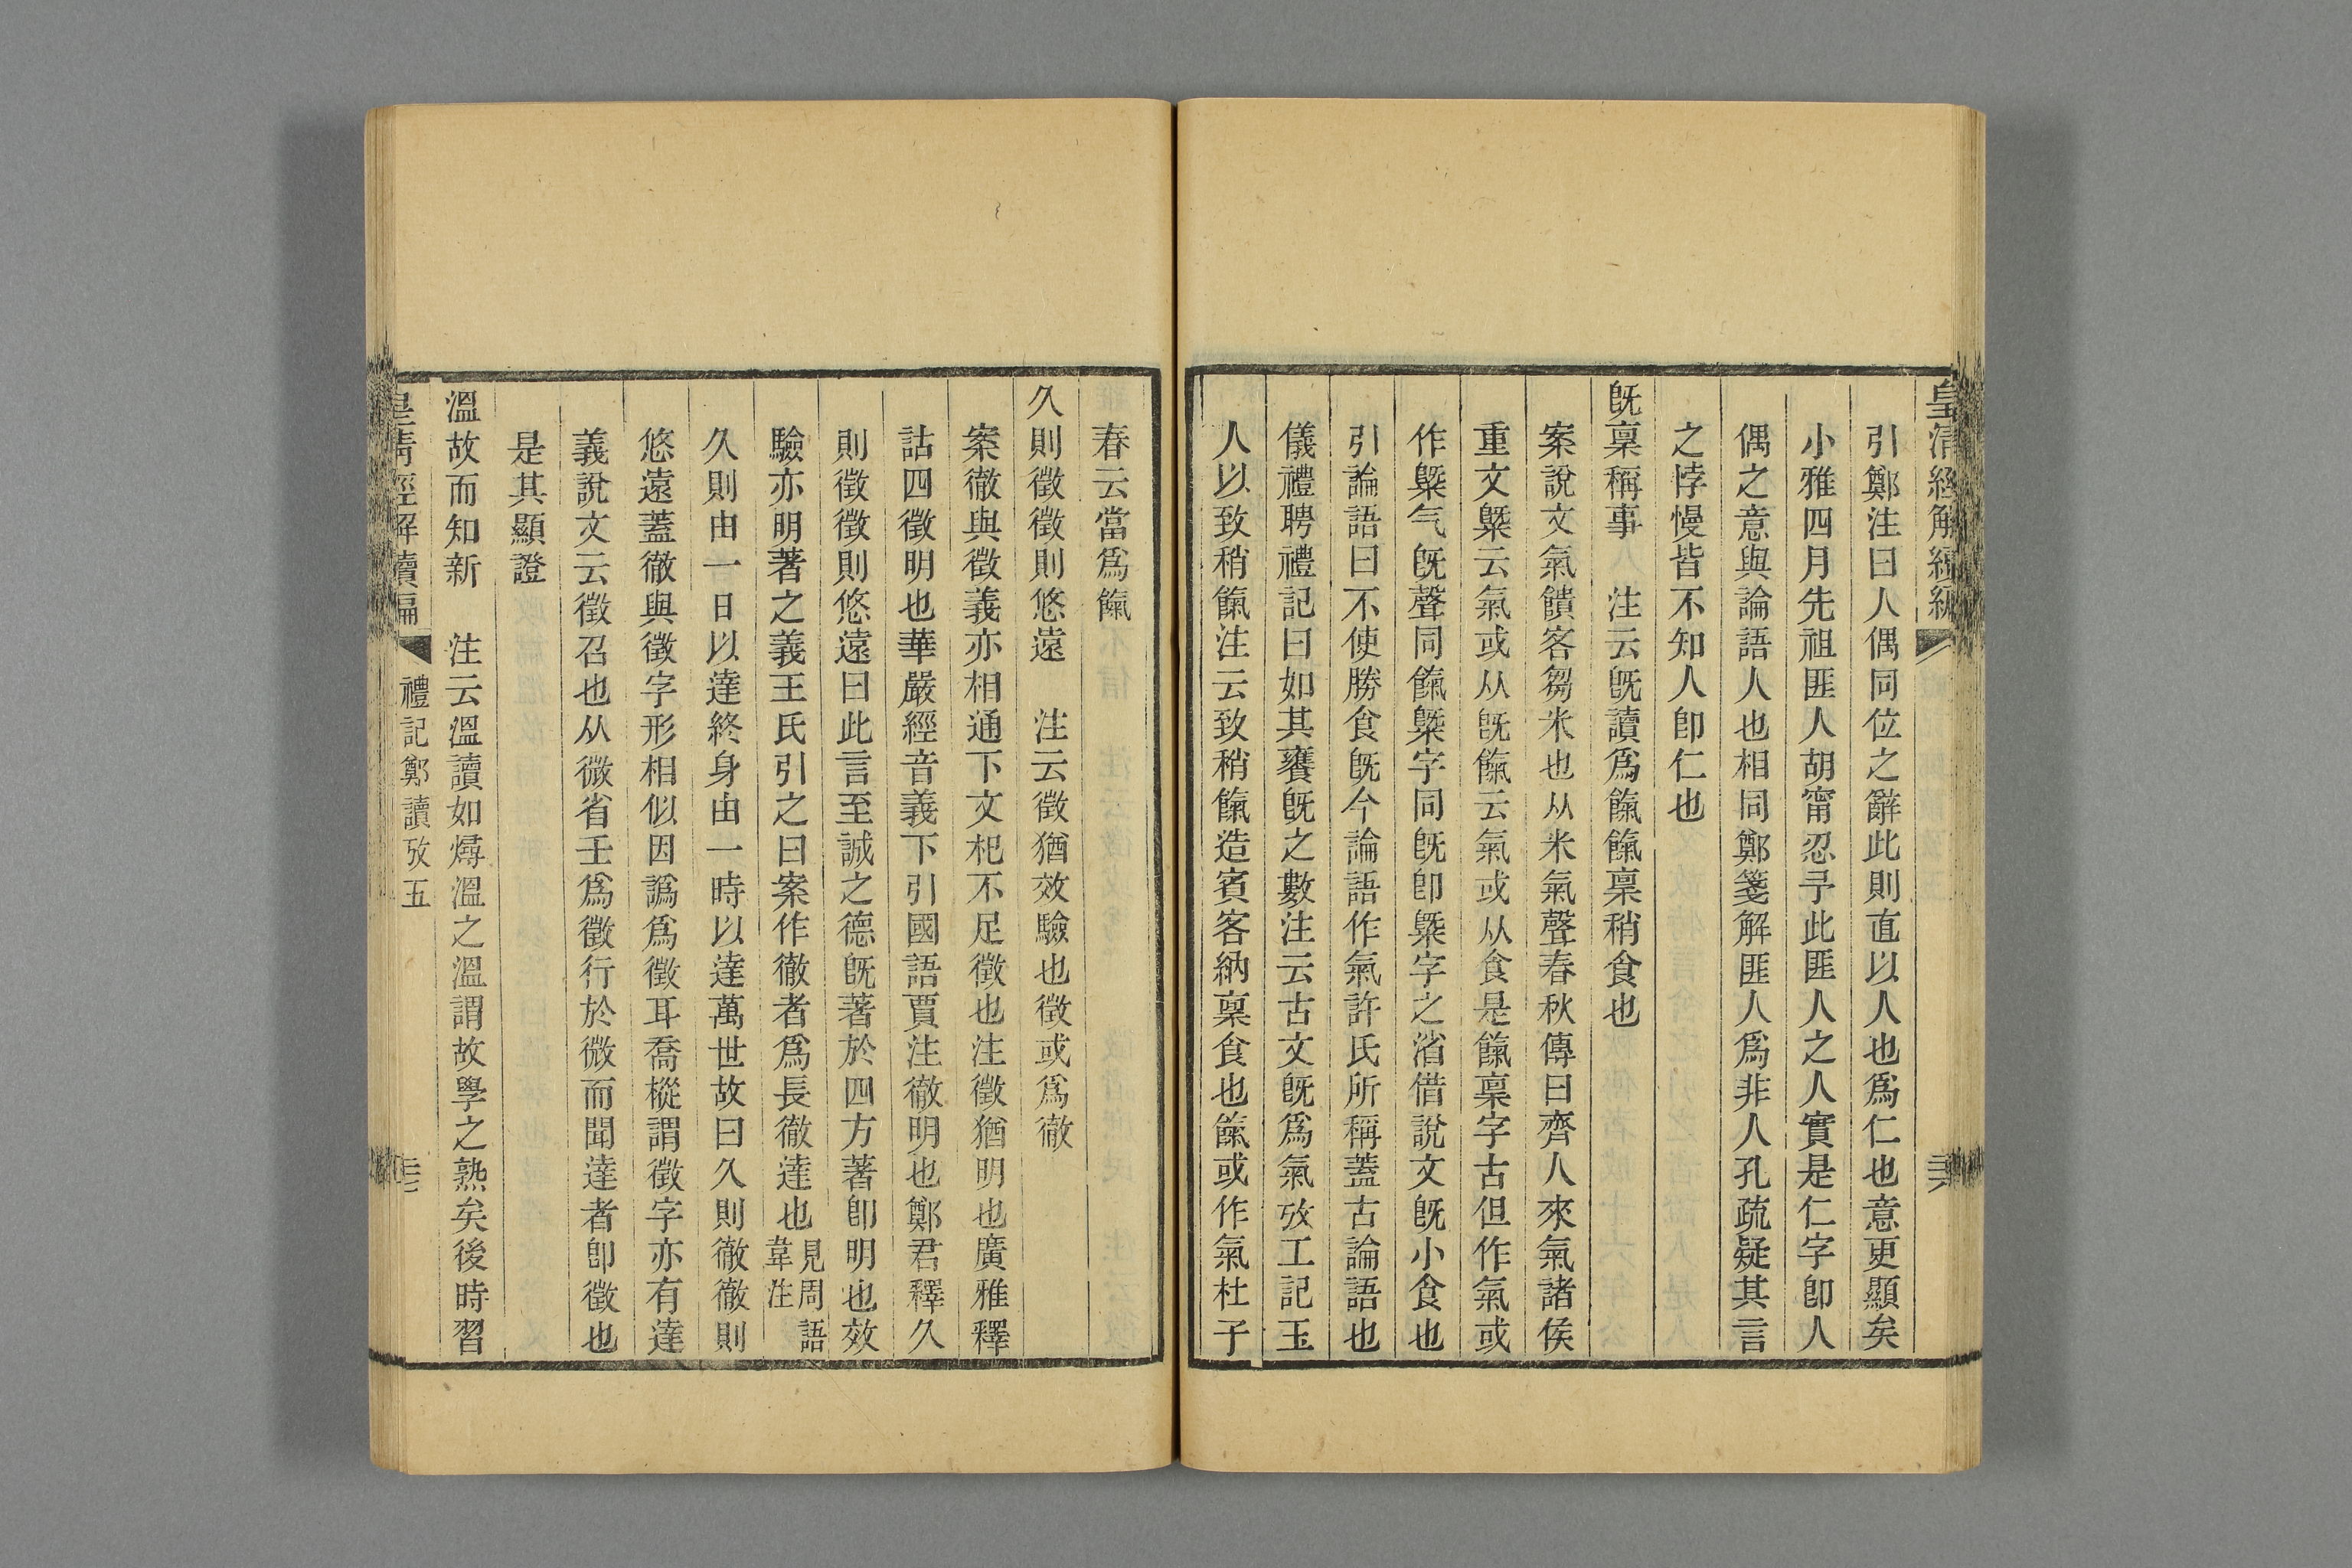 皇清經解續編
引鄭注曰人偶同位之辭此則直以人也爲仁也意更顯矣
小雅四月先祖匪人胡甯忍予此匪人之人實是仁字卽人
偶之意與論語人也相同鄭箋解匪人爲非人孔疏疑其言
之悖慢皆不知人卽仁也
旣稟稱事　注云旣讀爲餼餼稟稍食也
案說文氣饋客芻米也从米气聲春秋傳曰齊人來氣諸侯
重文䊠云氣或从旣餼云氣或从食是餼稟字古但作氣或
作䊠气旣聲同餼䊠字同旣卽䊠字之渻借說文旣小食也
引論語曰不使勝食旣今論語作氣許氏所稱蓋古論語也
儀禮聘禮記曰如其饔旣之數注云古文旣爲氣攷工記玉
人以致稍餼注云致稍餼造賓客納稟食也餼或作氣杜子
春云當爲餼
久則徵徵則悠遠　注云徵猶效驗也徵或爲徹
案徹與徵義亦相通下文杞不足徵也注徵猶明也廣雅釋
詁四徵明也華嚴經音義下引國語賈注徹明也鄭君釋久
則徵徵則悠遠曰此言至誠之德旣著於四方著卽明也效
驗亦明著之義王氏引之曰案作徹者爲長徹達也見周語韋注
久則由一日以達終身由一時以達萬世故曰久則徹徹則
悠遠蓋徹與徵字形相似因譌爲徵耳喬樅謂徵字亦有達
義說文云徵召也从微省壬爲徵行於微而聞達者卽徵也
是其顯證
溫故而知新　注云溫讀如燖溫之溫謂故學之熟矣後時習
皇清經解續編
禮記鄭讀攷五